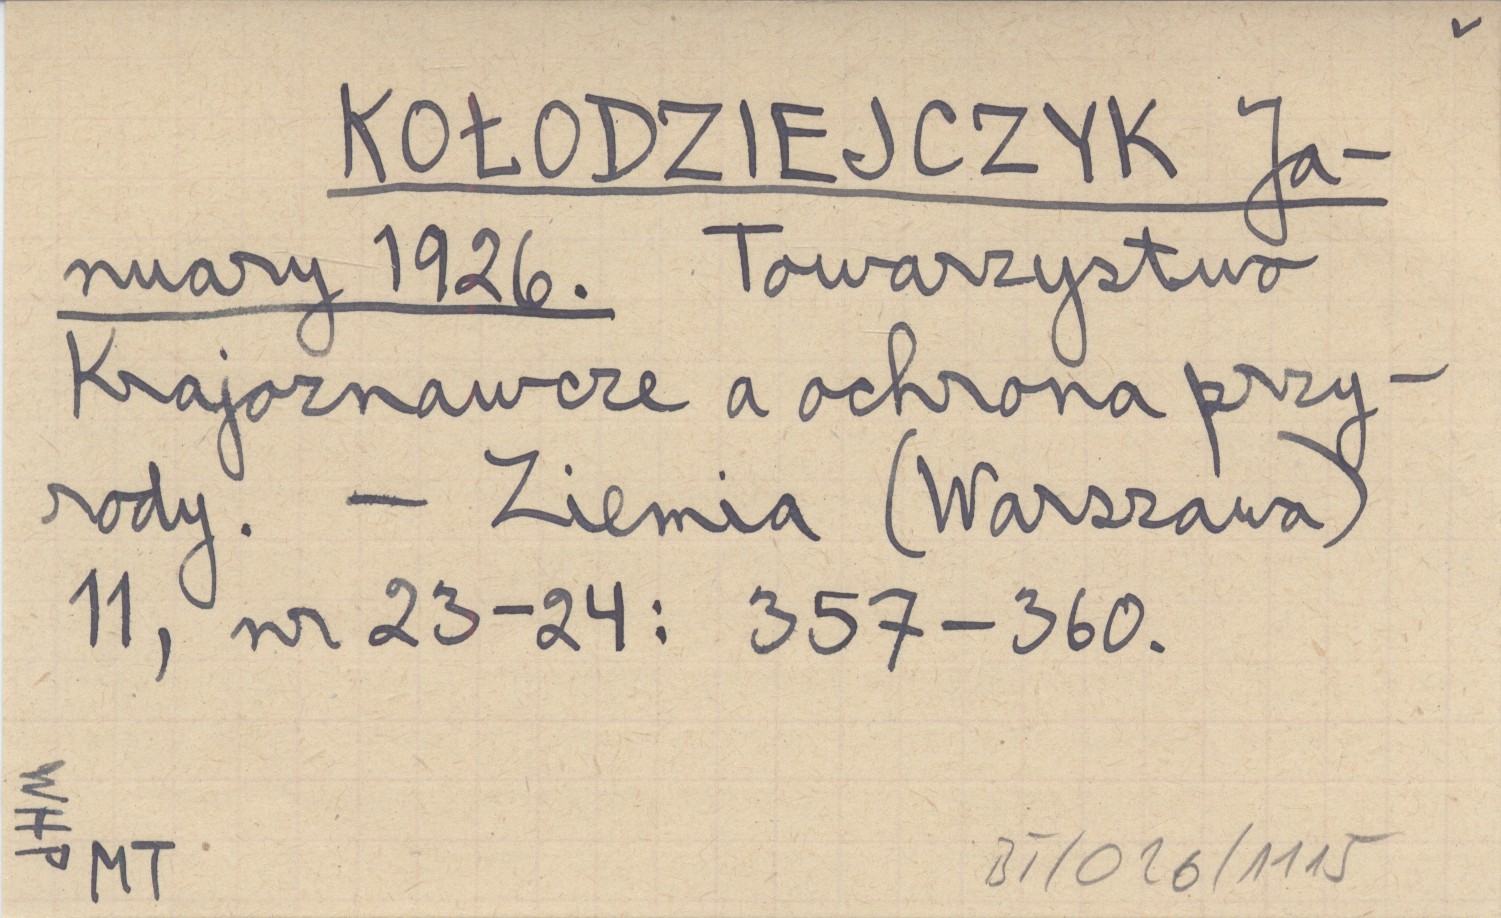 KOŁODZIEJCZYK Ja-
nuary 1926. Towarzystwo
Krajoznawcze a ochrona przy-
rody. — Ziemia (Warszawa)
11, nr 23-24: 357-360.
WHP
MT
BT/026/1115